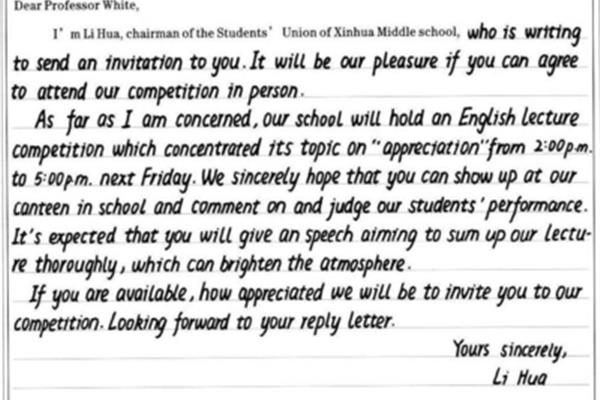 Dear Professor White,
I'm Li Hua, chairman of the Students' Union of Xinhua Middle school, who is writing
to send an invitation to you. It will be our pleasure if you can agree
to attend our competition in person.
As far as I am concerned, our school will hold an English lecture
competition which concentrated its topic on "appreciation" from 2:00p.m.
to 5:00p.m. next Friday. We sincerely hope that you can show up at our
canteen in school and comment on and judge our students' performance.
It's expected that you will give an speech aiming to sum up our lectu-
re thoroughly, which can brighten the atmosphere.
If you are available, how appreciated we will be to invite you to our
competition. Looking forward to your reply letter.
Yours sincerely,
Li Hua